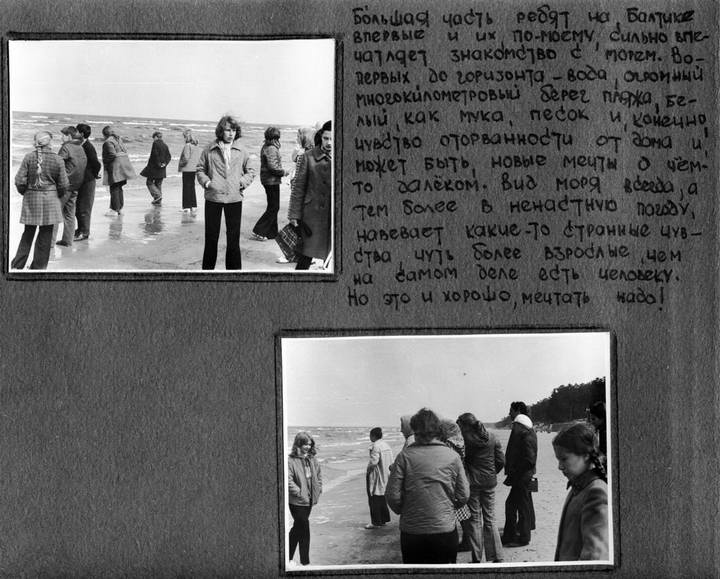 Бо́льшая часть ребят на Балтике
впервые и их, по-моему, сильно впе-
чатляет знакомство с морем. Во-
первых до горизонта – вода, огромный
многокилометровый берег пляжа, бе-
лый, как мука, песок и, конечно,
чувство оторванности от дома и,
может быть, новые мечты о чём-
то далёком. Вид моря всегда, а
тем более в ненастную погоду,
навевает какие-то странные чув-
ства, чуть более взрослые, чем
на самом деле есть человеку.
Но это и хорошо, мечтать надо!